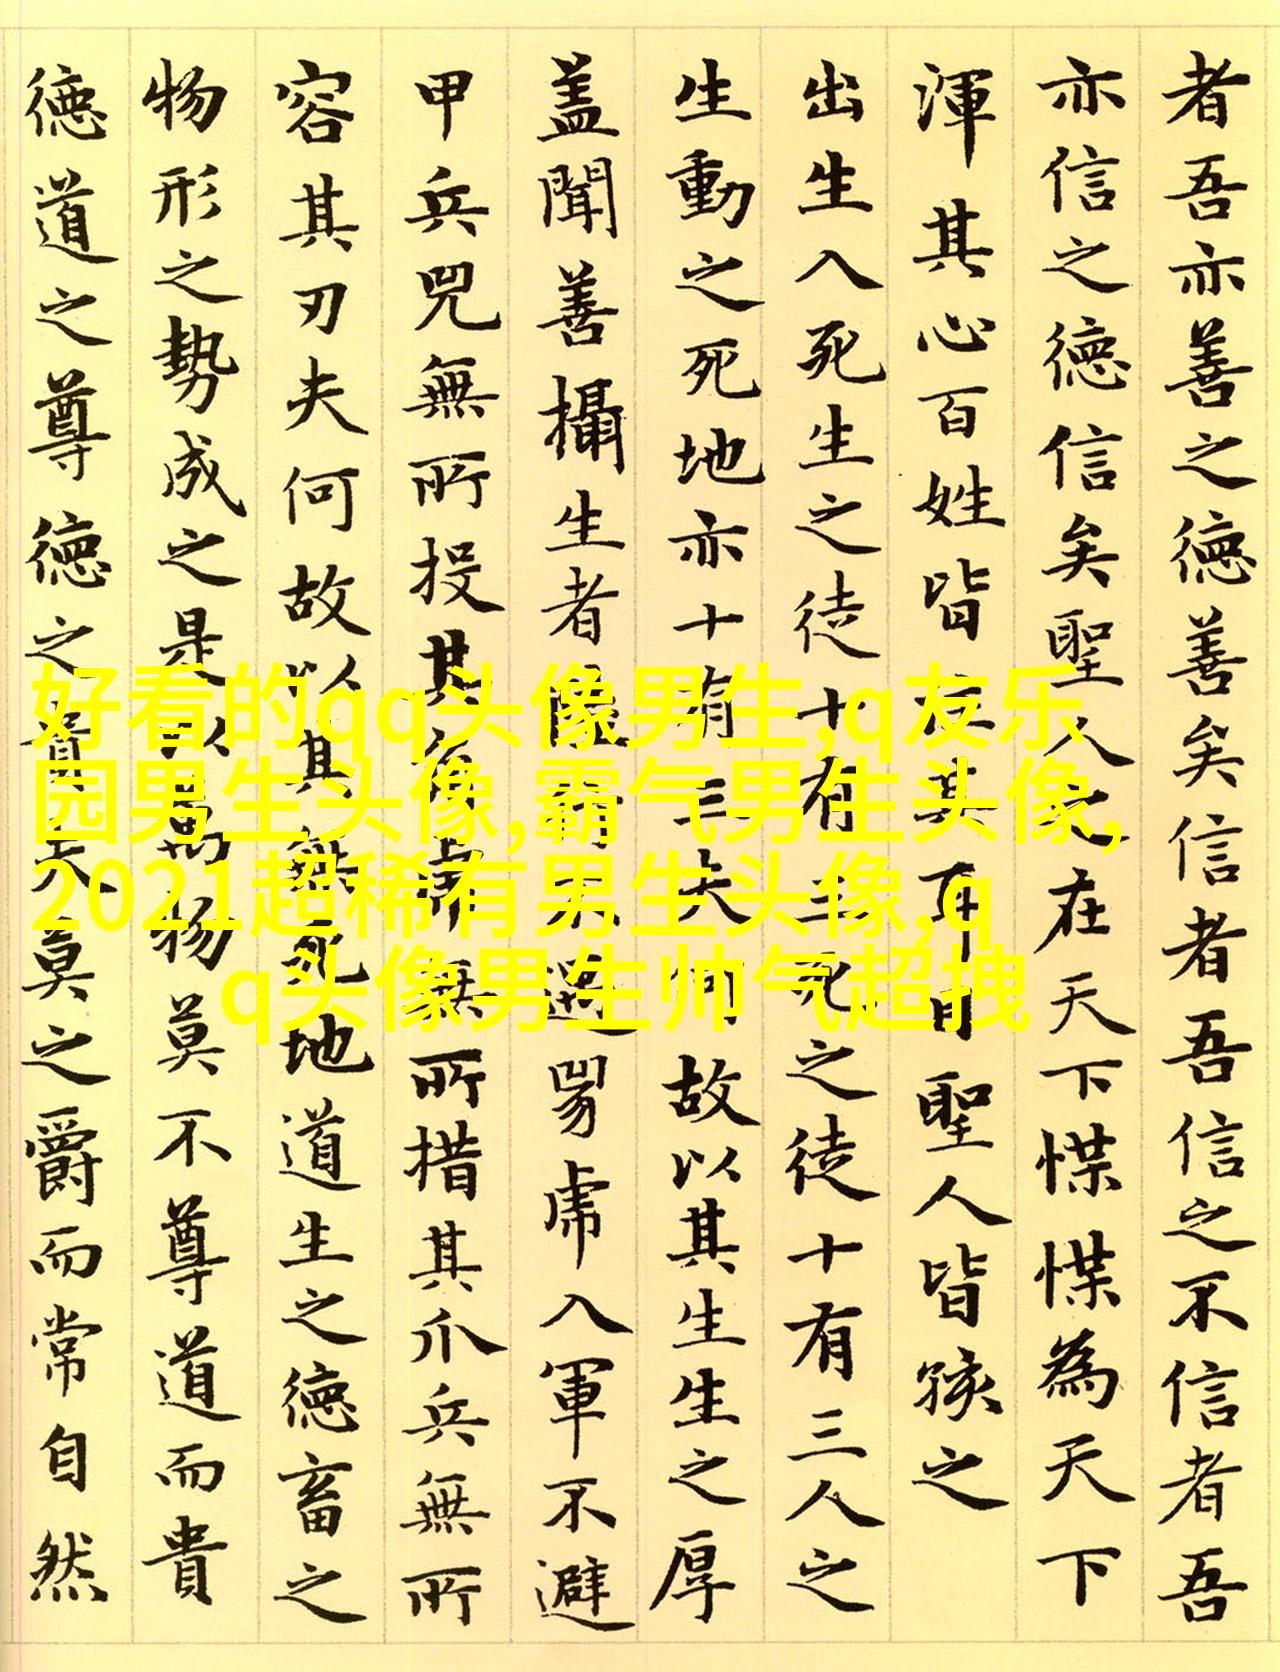 者吾亦善之德善矣信者吾信之不信者吾
亦信之德信矣聖人之在天下惵惵為天下
渾其心百姓皆注其耳目聖人皆孩之
出生入死生之徒十有三死之徒十有三人之
生動之死地亦十有三夫何故以其生生之厚
蓋聞善攝生者陸行不遇兕虎入軍不避
甲兵兕無所投其角虎無所措其爪兵無所
容其刃夫何故以其無死地道生之德畜之
物形之勢成之是以萬物莫不尊道而貴
德道之尊德之貴夫莫之爵而常自然
好看的qq头像男生,q友乐
园男生头像,霸气男生头像,
2021超稀有男生头像,q
q头像男生帅气超拽